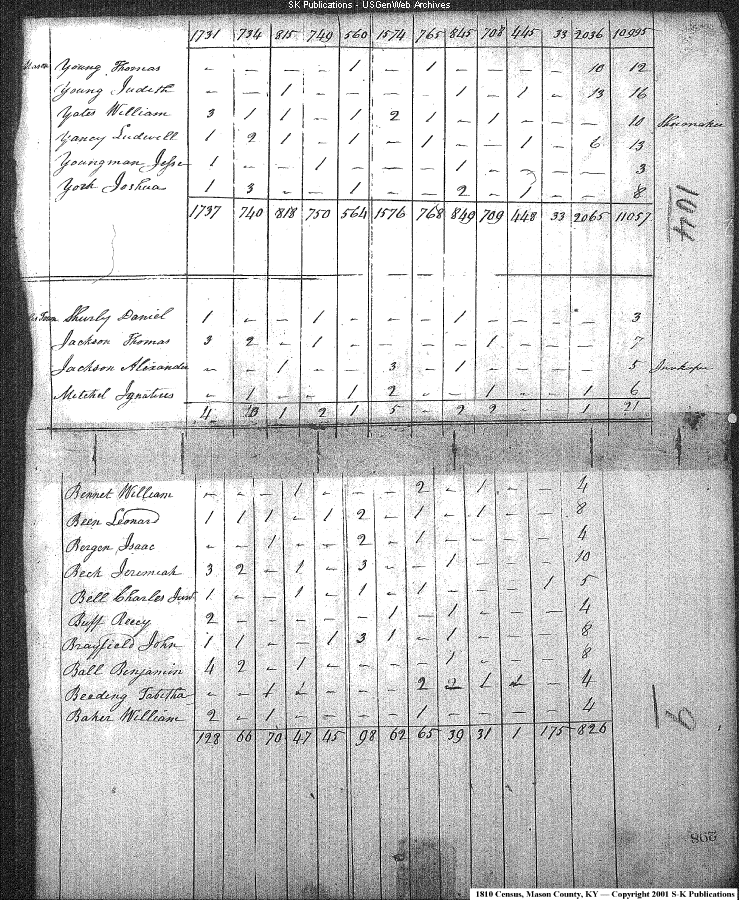 SK Publications - USGenWeb Archives
1731 734 815 749 560 1574 765 845 708 445 33 2036 10995
Mason Young Thomas - - - - 1 - 1 - - - - 10 12
Young Judith - - 1 - - - - 1 - 1 - 13 16
Yates William 3 1 1 - 1 2 1 - 1 - - - 10 Shoemaker
Yancy Ludwell 1 2 1 - 1 - 1 - - 1 - 6 13
Youngman Jesse 1 - - 1 - - - 1 - - - - 3
York Joshua 1 3 - - 1 - - 2 - 1 - - 8
1737 740 818 750 564 1576 768 849 709 448 33 2065 11057
104
Shurly Daniel 1 - - 1 - - - 1 - - - - 3
Jackson Thomas 3 2 - 1 - - - - 1 - - - 7
Jackson Alixander - - 1 - - 3 - 1 - - - - 5
Mitchel Ignatius - 1 - - 1 2 - - 1 - - 1 6
4 3 1 2 1 5 - 2 2 - - 1 21
Bennet William - - - 1 - - - 2 - 1 - - 4
Been Leonard 1 1 1 - 1 2 - 1 - 1 - - 8
Bergen Isaac - - 1 - - 2 - 1 - - - - 4
Beck Jeremiah 3 2 - 1 - 3 - - 1 - - - 10
Bell Charles Junr 1 - - 1 - 1 - 1 - - - 1 5
Buff Reecy 2 - - - - - 1 - 1 - - - 4
Brayfield John 1 1 - - 1 3 1 - 1 - - - 8
Ball Benjamin 4 2 - 1 - - - - 1 - - - 8
Beeding Tabitha - - 1 1 - - - 2 2 1 1 - 4
Baker William 2 - 1 - - - - 1 - - - - 4
128 66 70 47 45 98 62 65 39 31 1 175 826
9
298
1810 Census, Mason County, KY — Copyright 2001 S-K Publications